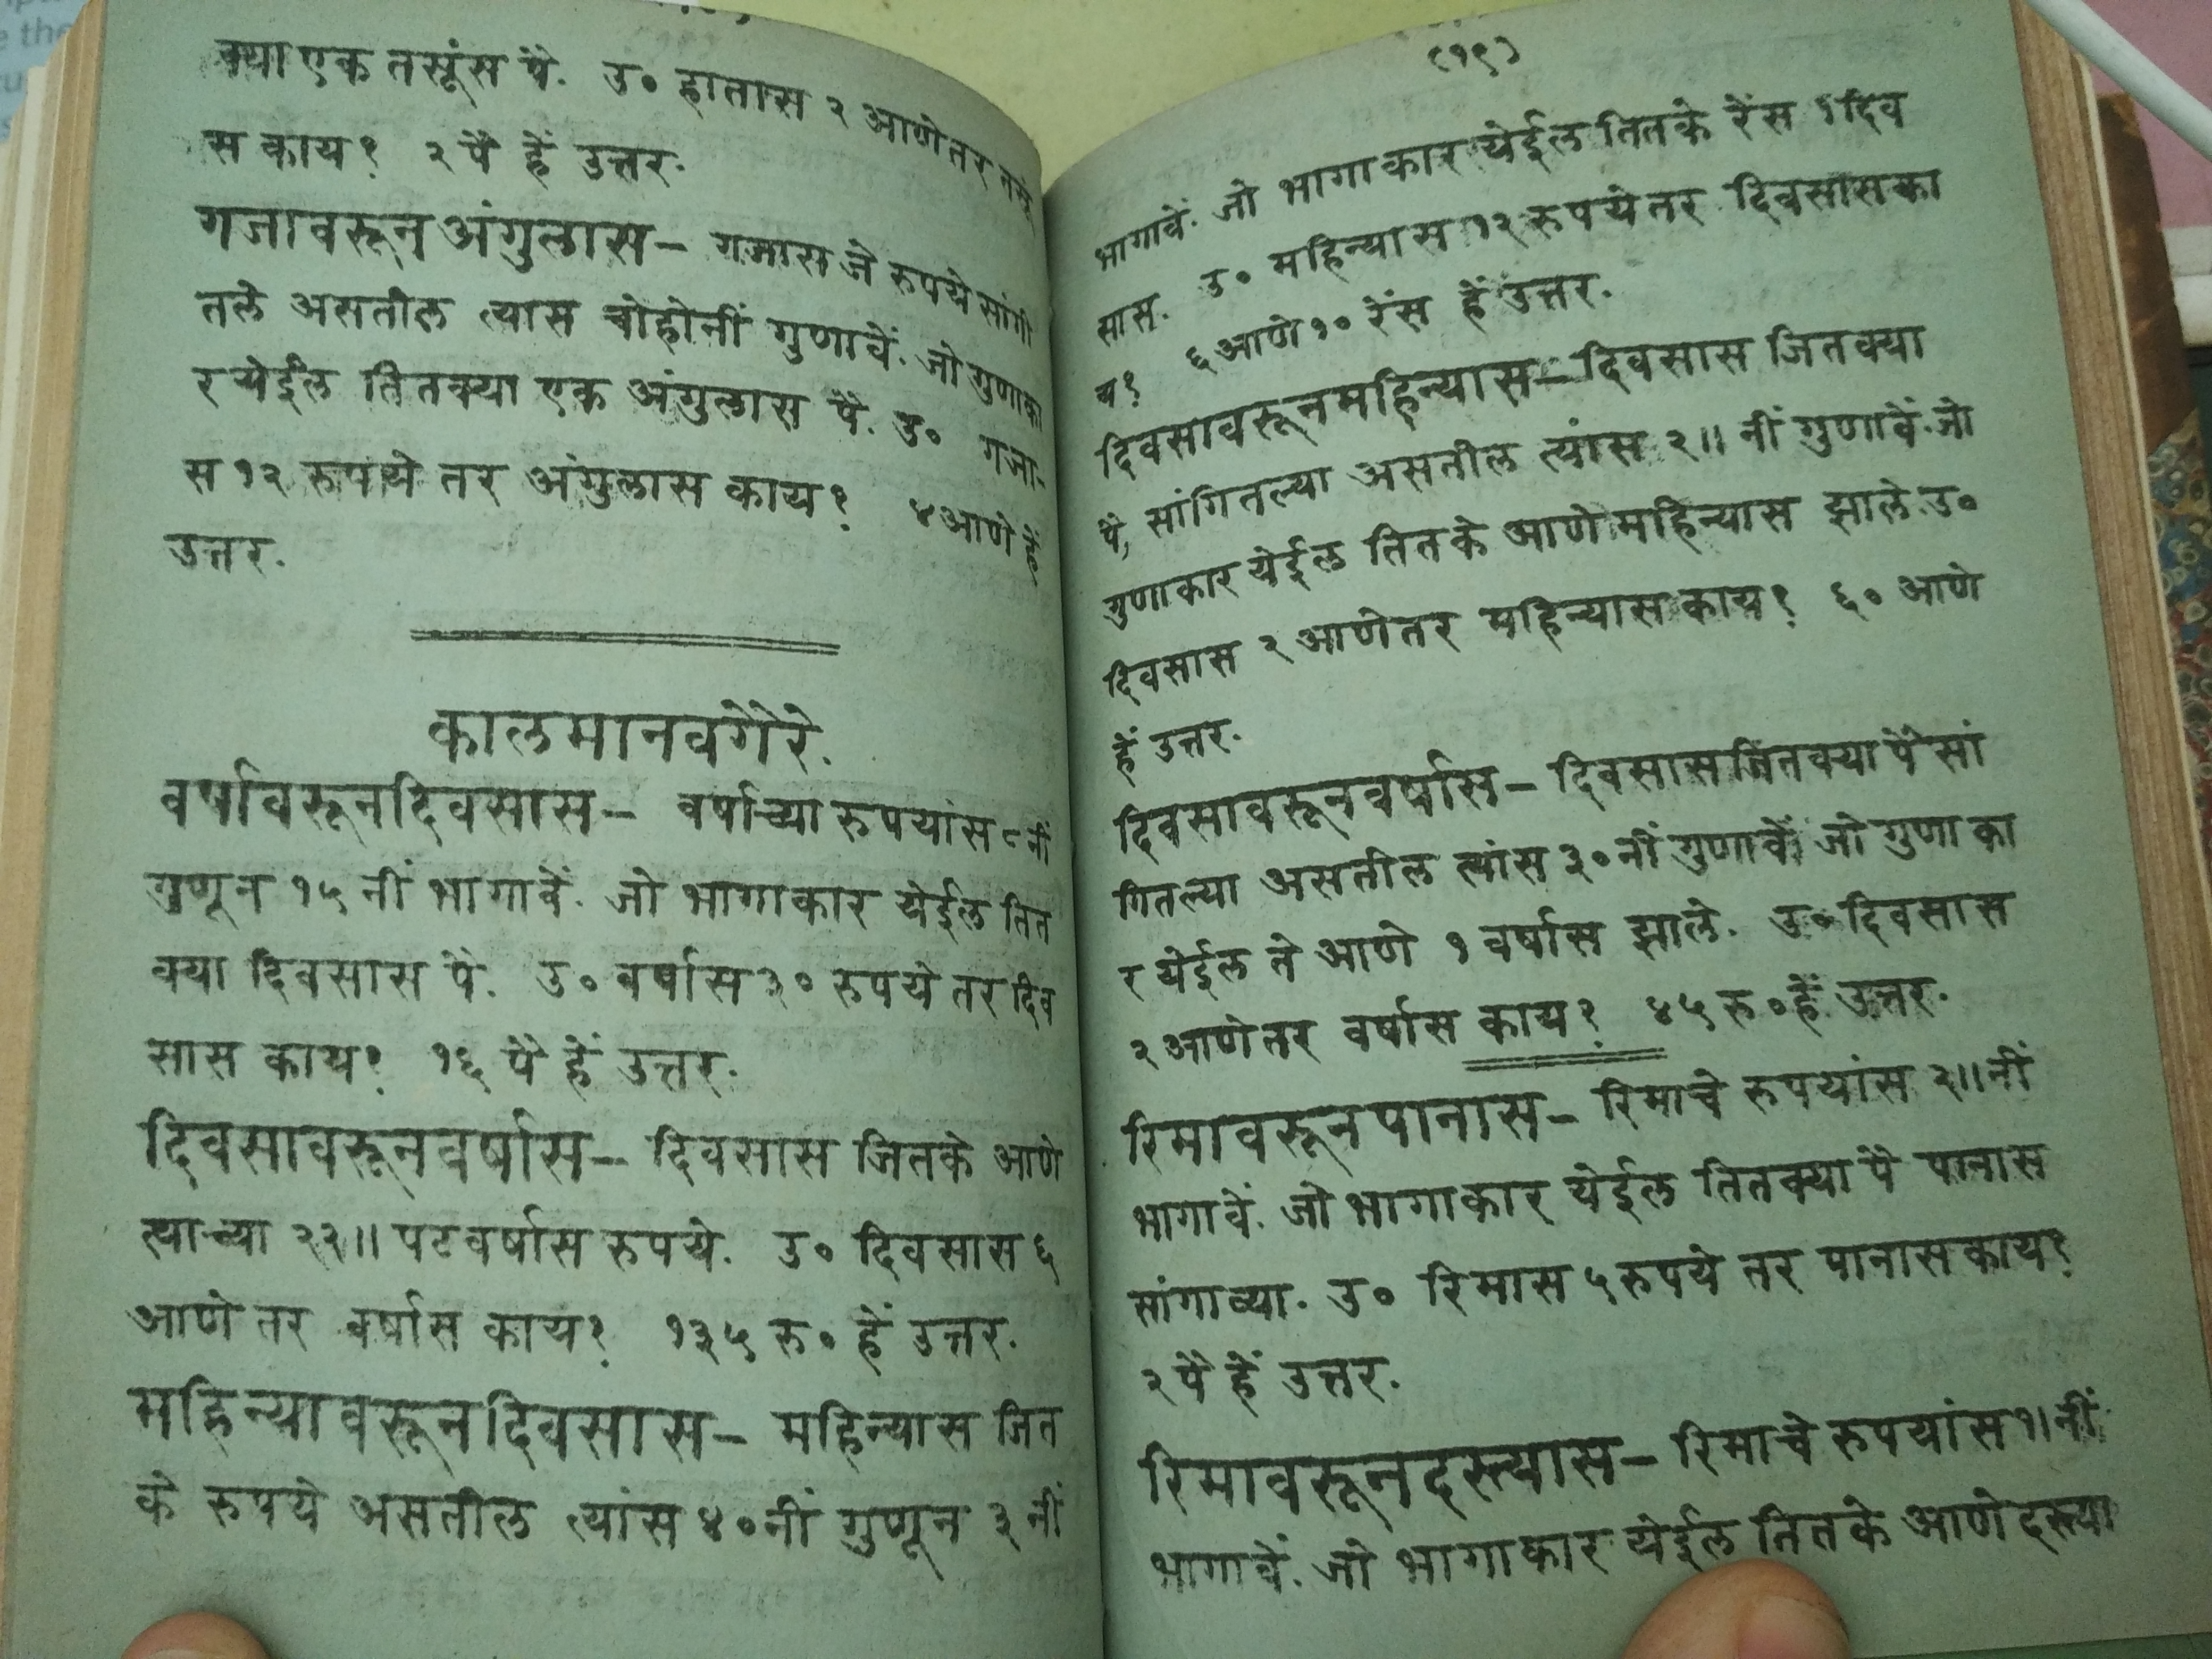 क्या एक तसूंस पै. उ० हातास २ आणे तर तसू
स काय? २ पै हें उत्तर.
गजावरून अंगुलास— गजास जे रुपये सांगी
तले असतील त्यास चोहोंनीं गुणावें. जो गुणाका
र येईल तितक्या एक अंगुलास पै. उ० गजा-
स १२ रुपये तर अंगुलास काय? ४ आणे हें
उत्तर.
कालमान वगैरे.
वर्षावरून दिवसास— वर्षाच्या रुपयांस ८ नीं
गुणून १५ नीं भागावें. जो भागाकार येईल तित
क्या दिवसास पै. उ० वर्षास ३० रुपये तर दिव
सास काय? १६ पै हें उत्तर.
दिवसावरून वर्षास— दिवसास जितके आणे
त्याच्या २२॥ पट वर्षास रुपये. उ० दिवसास ६
आणे तर वर्षास काय? १३५ रु० हें उत्तर.
महिन्यावरून दिवसास— महिन्यास जित
के रुपये असतील त्यांस ४० नीं गुणून ३ नीं
(१९)
भागावें. जो भागाकार येईल तितके रेंस १ दिव
सास. उ० महिन्यास १२ रुपये तर दिवसास का
य? ६ आणे १० रेंस हें उत्तर.
दिवसावरून महिन्यास— दिवसास जितक्या
पै, सांगितल्या असतील त्यांस २॥ नीं गुणावें. जो
गुणाकार येईल तितके आणे महिन्यास झाले. उ०
दिवसास २ आणे तर महिन्यास काय? ६० आणे
हें उत्तर.
दिवसावरून वर्षास— दिवसास जितक्या पै सां
गितल्या असतील त्यांस ३० नीं गुणावें जो गुणाका
र येईल ते आणे १ वर्षास झाले. उ० दिवसास
२ आणे तर वर्षास काय? ४५ रु० हें उत्तर.
रिमावरून पानास— रिमाचे रुपयांस २॥ नीं
भागावें. जो भागाकार येईल तितक्या पै पानास
सांगाव्या. उ० रिमास ५ रुपये तर पानास काय?
२ पै हें उत्तर.
रिमावरून दस्त्यास— रिमाचे रुपयांस १। नीं
भागावें. जो भागाकार येईल तितके आणे दस्त्या